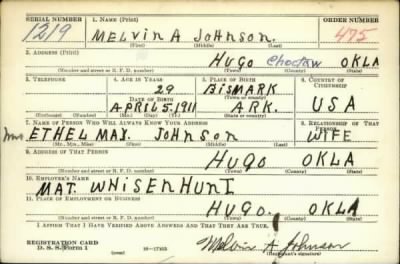 SERIAL NUMBER 1. NAME (Print) ORDER NUMBER
1219 MELVIN A JOHNSON. 475
(First) (Middle) (Last)
2. ADDRESS (Print)
HUGO Choctaw OKLA
(Number and street or R. F. D. number) (Town) (County) (State)
3. TELEPHONE 4. AGE IN YEARS 5. PLACE OF BIRTH 6. COUNTRY OF CITIZENSHIP
29 BISMARK
DATE OF BIRTH (Town or county)
APRIL 5. 1911 ARK. USA
(Exchange) (No.) (Mo.) (Day) (Yr.) (State or country)
7. NAME OF PERSON WHO WILL ALWAYS KNOW YOUR ADDRESS 8. RELATIONSHIP OF THAT PERSON
Mrs ETHEL MAY JOHNSON WIFE
(Mr., Mrs., Miss) (First) (Middle) (Last)
9. ADDRESS OF THAT PERSON
HUGO OKLA
(Number and street or R. F. D. number) (Town) (County) (State)
10. EMPLOYER'S NAME
MAT. WHISENHUNT
11. PLACE OF EMPLOYMENT OR BUSINESS
HUGO. OKLA
(Number and street or R. F. D. number) (Town) (County) (State)
I AFFIRM THAT I HAVE VERIFIED ABOVE ANSWERS AND THAT THEY ARE TRUE.
REGISTRATION CARD
D. S. S. Form 1 (over) 16—17105 Melvin A Johnson
(Registrant's signature)